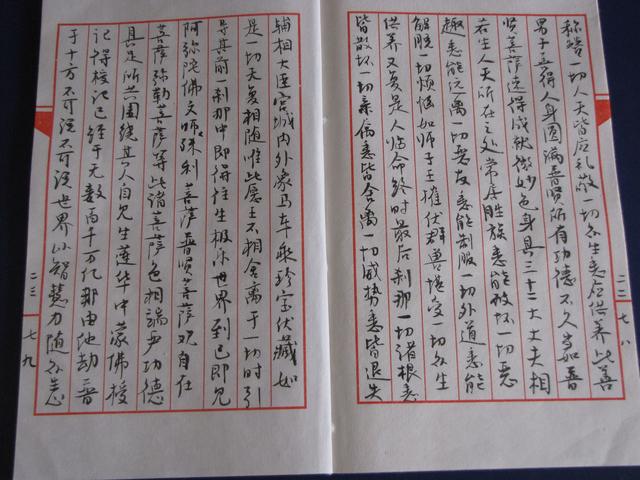 称赞一切人天皆应礼敬一切众生悉应供养此善
男子善得人身圆满普贤所有功德不久当如普
贤菩萨速得成就微妙色身具三十二大丈夫相
若生人天所在之处常居胜族悉能破坏一切恶
趣悉能远离一切恶友悉能制服一切外道悉能
解脱一切烦恼如师子王摧伏群兽堪受一切众生
供养又复是人临命终时最后刹那一切诸根悉
皆散坏一切亲属悉皆舍离一切威势悉皆退失
二二 七八
辅相大臣宫城内外象马车乘珍宝伏藏如
是一切无复相随惟此愿王不相舍离于一切时引
导其前一刹那中即得往生极乐世界到已即见
阿弥陀佛文师殊利菩萨普贤菩萨观自在
菩萨弥勒菩萨等此诸菩萨色相端严功德
具足所共围绕其人自见生莲华中蒙佛授
记得授记已经于无数百千万亿那由他劫普
于十方不可说不可说世界以智慧力随众生心
二三 七九